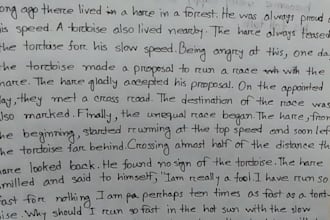 ong ago there lived in a hare in a forrest. He was always proud
is speed. A tortoise also lived nearby. The hare always teased
the tortoise for his slow speed. Being angry at this, one da
the tortoise made a proposal to run a race with the
hare. The hare gladly accepted his proposal. On the appointed
ay, they met a cross road. The destination of the race was
lso marked. Finally, the unequal race began. The hare, from
he beginning, started running at the top speed and soon left
e tortoise far behind. Crossing almost half of the distance th
are looked back. He found no sign of the tortoise. The hare
milled and said to himself, "Iam really a fool. I have run so
ast for nothing. I am perhaps ten times as fast as a tort-
ise. Why should I run so fast in the hot sun with the slow